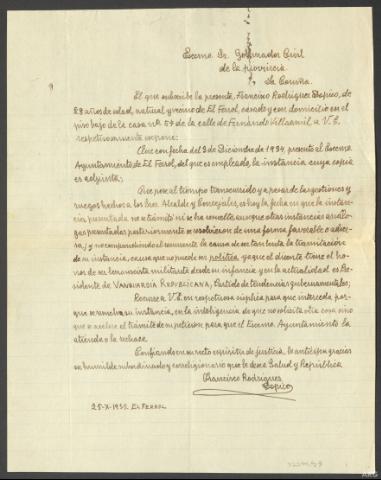 Excmo. Sr. Gobernador Civil
de la provincia
La Coruña.
El que subscribe la presente, Francisco Rodríguez Sopico, de
28 años de edad, natural y vecino de El Ferol, casado y con domicilio en el
piso bajo de la casa nº 54 de la calle de Fernando Villaamil, a V.E.
respetuosamente expone:
Que con fecha del 3 de Diciembre de 1934, presentó al Excmo.
Ayuntamiento de El Ferol, del que es empleado, la instancia cuya copia
es adjunta;
Que pese al tiempo transcurrido y a pesar de las gestiones y
ruegos hechos a los Srs. Alcalde y Concejales, es hoy la fecha en que la instan-
cia presentada no se tramitó ni se ha resuelto aunque otras instancias análo-
gas presentadas posteriormente se resolvieron de una forma favorable o adver-
sa; y no comprendiendo el recurrente la causa de ser tan lenta la tramitación
de su instancia, causa que no puede ser política ya que el dicente tiene el ho-
nor de ser lerrouxista militante desde su infancia y en la actualidad es Pre-
sidente de Vanguardia Republicana, Partido de tendencias gubernamentales;
Recurre a V.E. en respetuosa súplica para que interceda por-
que se resuelva su instancia, en la inteligencia de que no solicita otra cosa sino
que se acelere el trámite de su petición para que el Excmo. Ayuntamiento la
atienda o la rechace.
Confiando en su recto espíritu de justicia, le anticipa gracias
su humilde subordinado y correligionario que le desea Salud y República
Francisco Rodríguez
Sopico
25-X-1935. El Ferrol